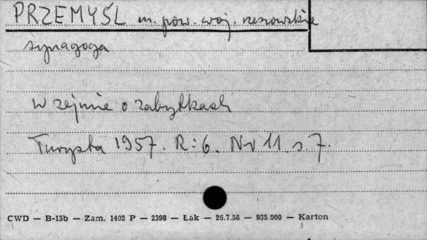 PRZEMYŚL m. pow. woj. rzeszowskie
synagoga
W sejmie o zabytkach
Turysta 1957. R: 6. Nr 11 s 7.
CWD — B-15b — Zam. 1402 P — 2398 — Łak — 26.7.56 — 935.000 — Karton